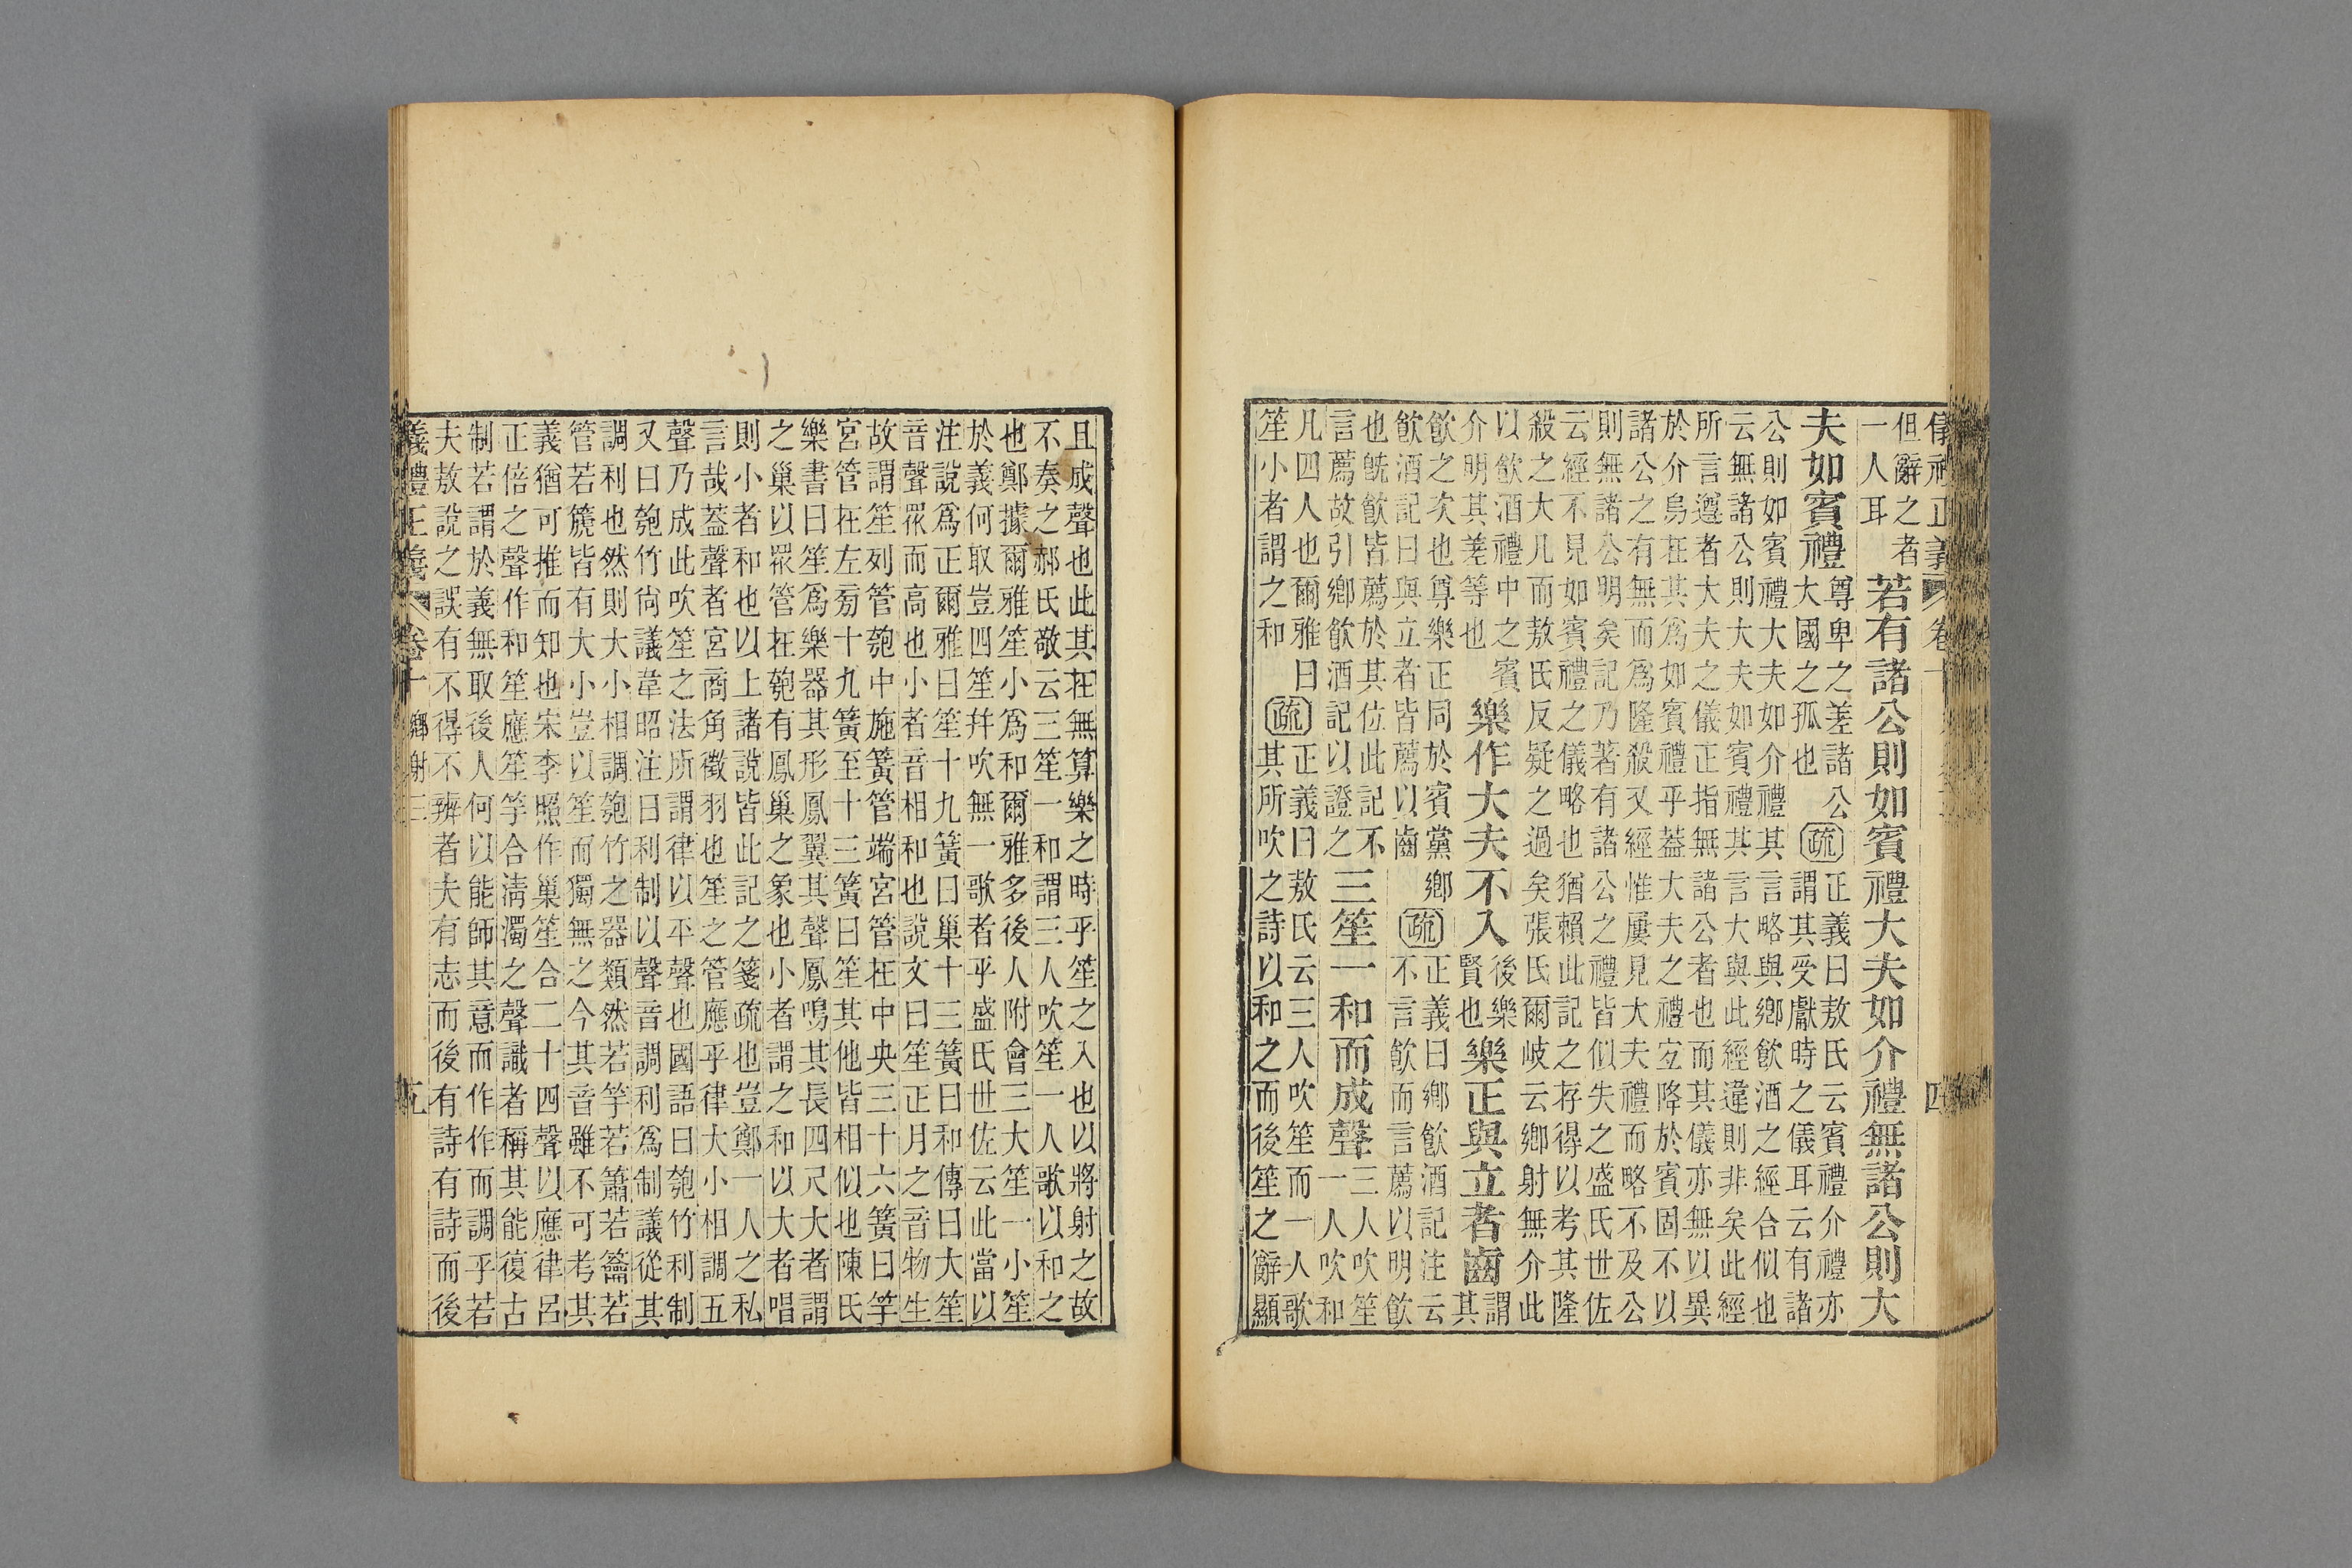 儀禮正義 卷十 四
但辭之者
一人耳
若有諸公則如賓禮大夫如介禮無諸公則大
夫如賓禮
尊卑之差諸公
大國之孤也
疏
正義曰敖氏云賓禮介禮亦
謂其受獻時之儀耳云有諸
公則如賓禮大夫如介禮其言略與鄉飲酒之經合似也
云無諸公則大夫如賓禮其言大與此經違則非矣此經
所言遵者大夫之儀正指無諸公者也而其儀亦無以異
於介烏在其爲如賓禮乎蓋大夫之禮宐降於賓固不以
諸公之有無而爲隆殺又經惟屢見大夫禮而略不及公
則無諸公明矣記乃著有諸公之禮皆似失之盛氏世佐
云經不見如賓禮之儀略也猶賴此記之存得以考其隆
殺之大凡而敖氏反疑之過矣張氏爾岐云鄉射無介此
以飮酒禮中之賓
介明其差等也
樂作大夫不入
後樂
賢也
樂正與立者齒
謂
其
飮之次也尊樂正同於賓黨鄉
飮酒記曰與立者皆薦以齒
疏
正義曰鄉飮酒記注云
不言飮而言薦以明飮
也旣飮皆薦於其位此記不
言薦故引鄉飮酒記以證之
三笙一和而成聲
三人吹笙
一人吹和
凡四人也爾雅曰
笙小者謂之和
疏
正義曰敖氏云三人吹笙而一人歌
其所吹之詩以和之而後笙之辭顯
且成聲也此其在無算樂之時乎笙之入也以將射之故
不奏之郝氏敬云三笙一和謂三人吹笙一人歌以和之
也鄭據爾雅笙小爲和爾雅多後人附會三大笙一小笙
於義何取豈四笙幷吹無一歌者乎盛氏世佐云此當以
注說爲正爾雅曰笙十九簧曰巢十三簧曰和傳曰大笙
音聲眾而高也小者音相和也說文曰笙正月之音物生
故謂笙列管匏中施簧管端宮管在中央三十六簧曰竽
宮管在左旁十九簧至十三簧曰笙其他皆相似也陳氏
樂書曰笙爲樂器其形鳳翼其聲鳳鳴其長四尺大者謂
之巢以眾管在匏有鳳巢之象也小者謂之和以大者唱
則小者和也以上諸說皆此記之箋疏也豈鄭一人之私
言哉蓋聲者宮商角徵羽也笙之管應乎律大小相調五
聲乃成此吹笙之法所謂律以平聲也國語曰匏竹利制
又曰匏竹尙議韋昭注曰利制以聲音調利爲制議從其
調利也然則大小相調匏竹之器類然若竽若簫若籥若
管若篪皆有大小豈以笙而獨無之今其音雖不可考其
義猶可推而知也宋李照作巢笙合二十四聲以應律呂
正倍之聲作和笙應笙竽合淸濁之聲識者稱其能復古
制若謂於義無取後人何以能師其意而作作而調乎若
夫敖說之誤有不得不辨者夫有志而後有詩有詩而後
儀禮正義 卷十 鄉射三